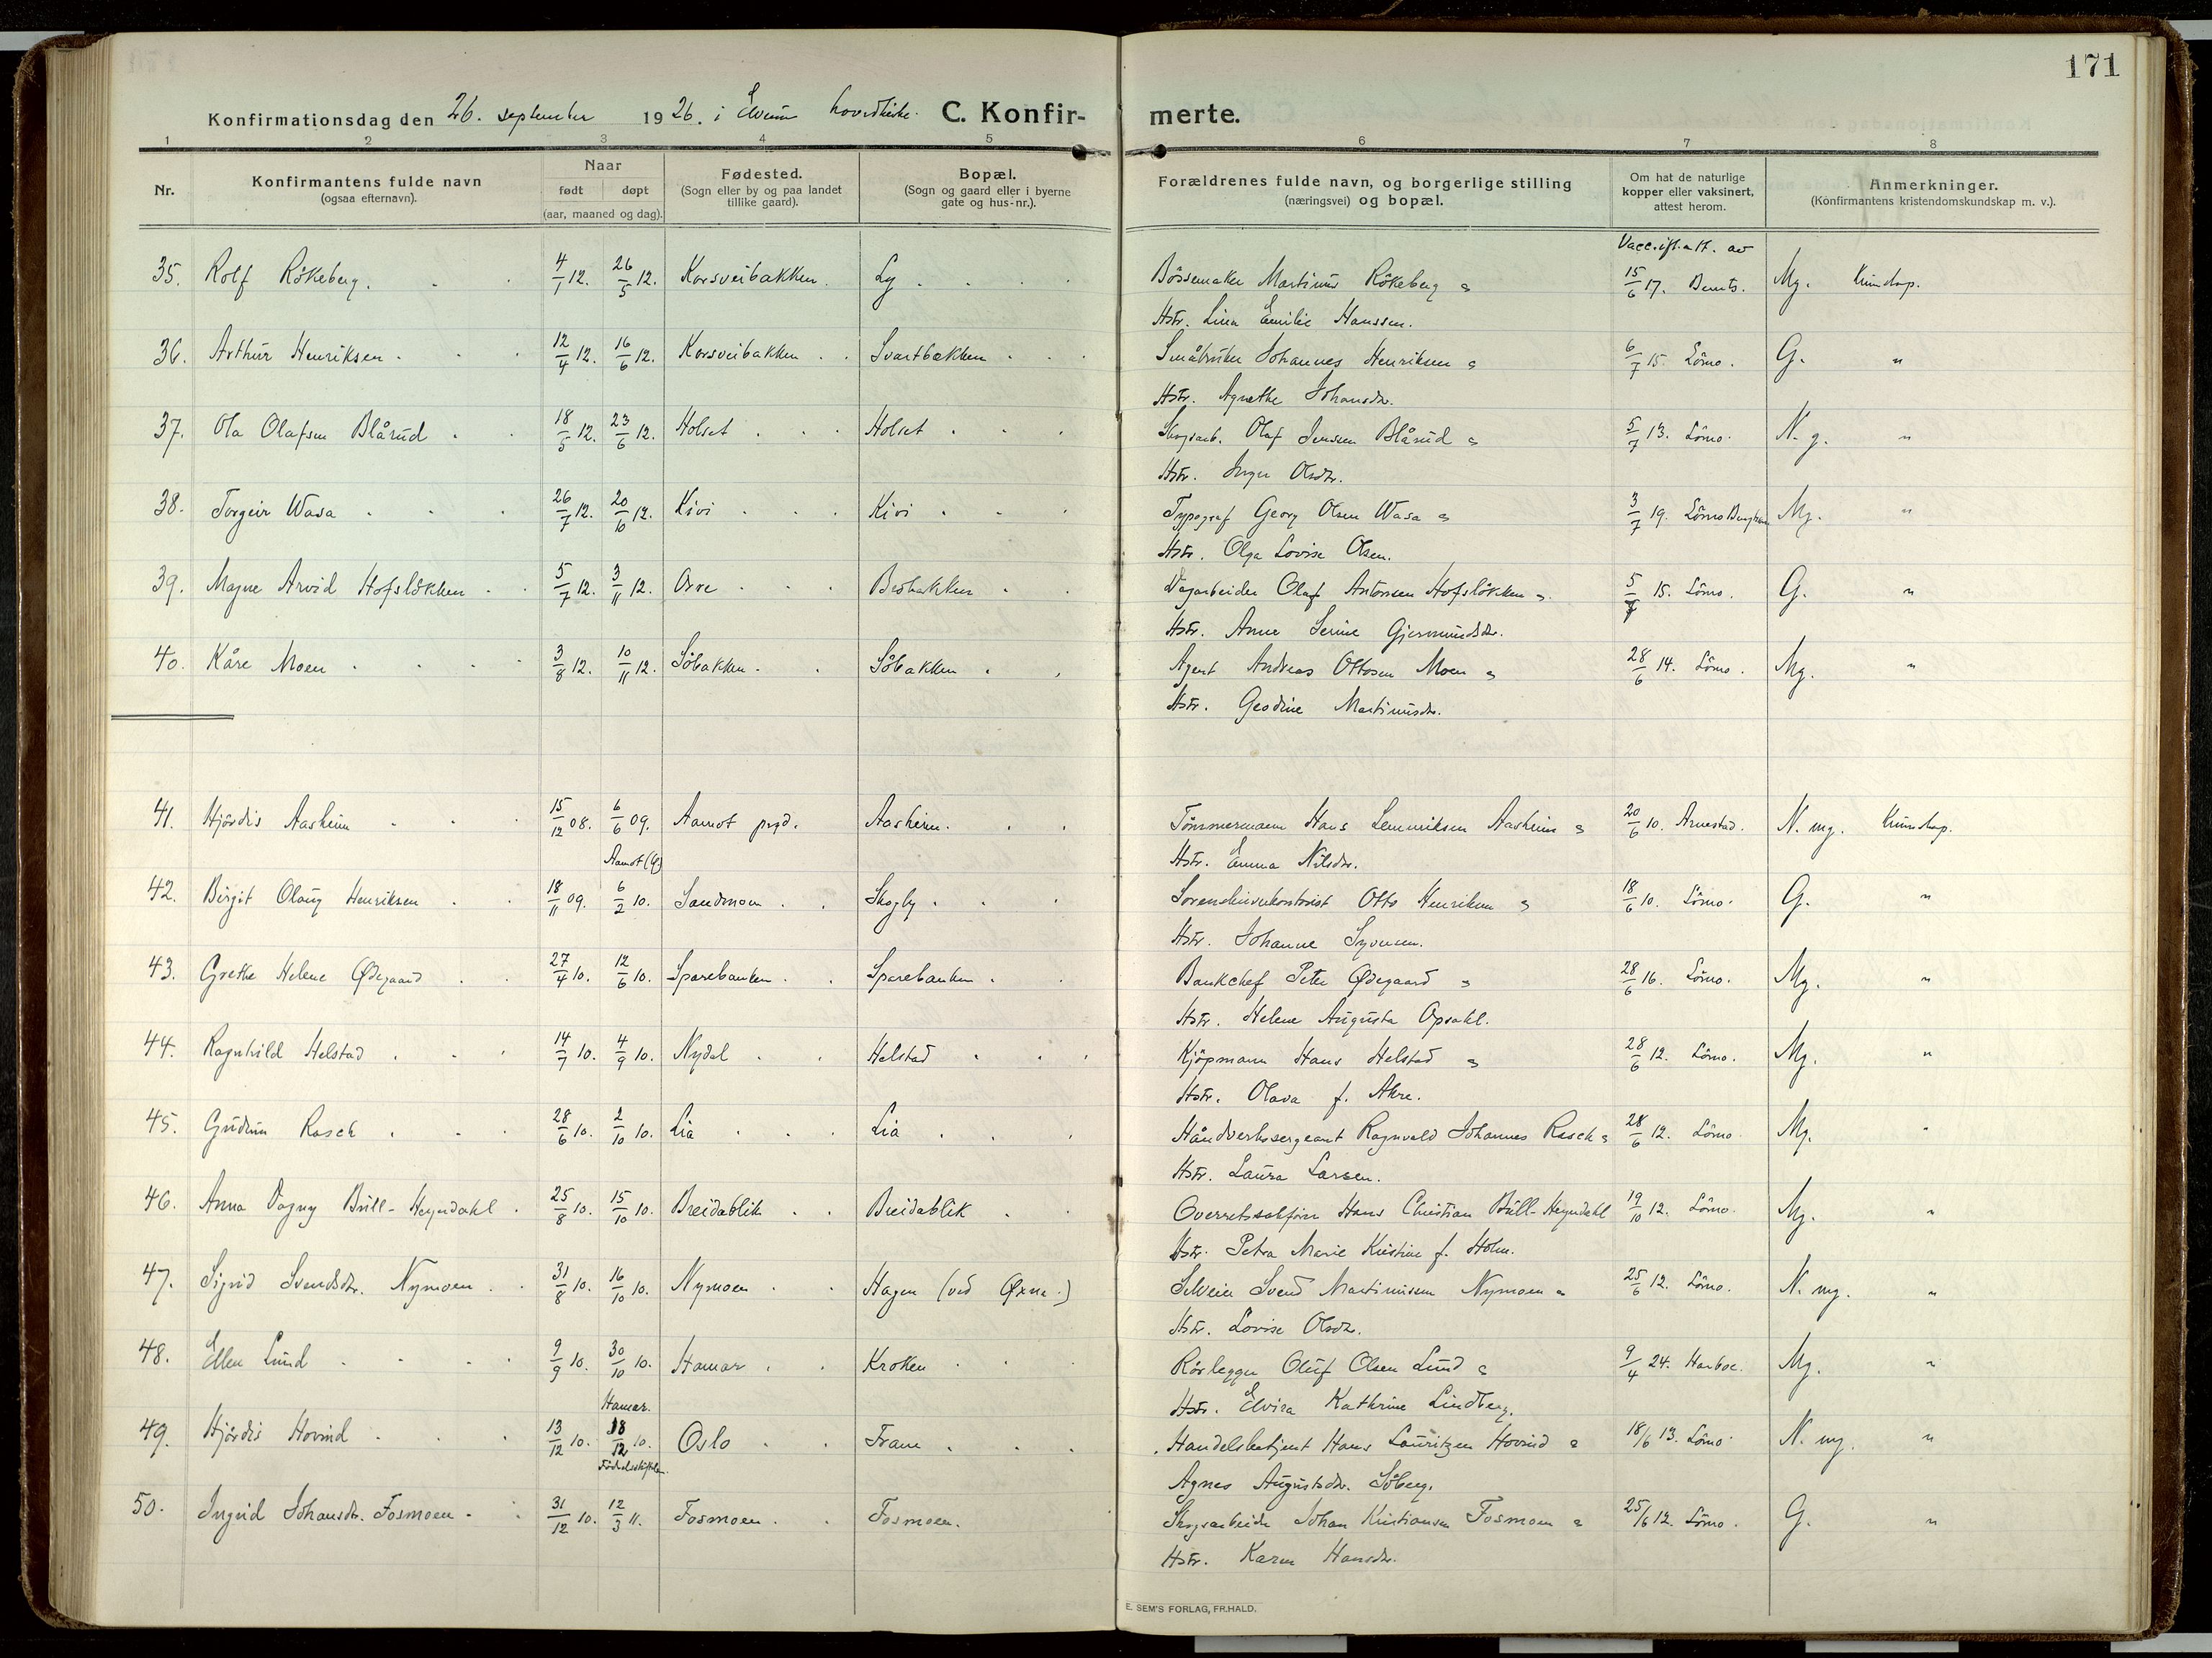 171
Konfirmationsdag den 26. september 1926. i Elverum hovedkirke. C. Konfir- merte.
1 2 3 4 5 6 7 8
Nr. Konfirmantens fulde navn (ogsaa efternavn). Naar født døpt (aar, maaned og dag). Fødested. (Sogn eller by og paa landet tillike gaard). Bopæl. (Sogn og gaard eller i byerne gate og hus-nr.). Forældrenes fulde navn, og borgerlige stilling (næringsvei) og bopæl. Om hat de naturlige kopper eller vaksinert, attest herom. Anmerkninger. (Konfirmantens kristendomskundskap m. v.).
Vacc. ifl. att. av
35. Rolf Rökeberg. 4/1 12. 26/5 12. Korsveibakken. Ly Bössemaker Martinus Rökeberg 15/6 17. Mg. Kundskap.
Hstr. Lina Emilie Hanssen.
36. Arthur Henriksen 12/4 12. 16/6 12. Korsveibakken Svartbakken Småbruker Johannes Henriksen 6/7 15. Lömo. G. "
Hstr. Agnethe Johansdr.
37. Ola Olafsen Blårud 18/5 12. 23/6 12. Holset Holset Skogsarb. Olaf Jenssen Blårud 5/7 13. Lömo. N. g. "
Hstr. Inger Olsdr.
38. Torgeir Wasa 26/7 12. 20/10 12. Kivi Kivi Typograf Georg Olsen Wasa 3/7 19. Lömo Mg. "
Hstr. Olga Lovise Olsen.
39. Magne Arvid Hofslökken 5/7 12. 3/11 12. Orre Veiarbeider Olaf Antonsen Hofslökken 5/7 15. Lömo. G. "
Hstr. Anne Serine Gjermundsdr.
40. Kåre Moen 3/8 12. 10/11 12. Söbakken Söbakken Agent Andreas Ottosen Moen 28/6 14. Lömo. Mg. "
Hstr. Geodine Martinusdr.
41. Hjördis Aasheim 15/12 08. 6/6 09. Aamot prgd. Aasheim. Tömmermann Hans Aasheim 20/6 10. Arnestad. N. mg. Kundskap.
Aamot Hstr. Emma Nilsdr.
42. Birgit Olaug Henriksen 18/11 09. 6/2 10. Sandmoen Skogly Sorenskriverkontorist Otto Henriksen 18/6 10. Lömo. G. "
Hstr. Johanne Syversen.
43. Grethe Helene Ødegaard 27/4 10. 12/6 10. Sparebanken Sparebanken Bankchef Peter Ødegaard 28/6 16. Lömo. Mg. "
Hstr. Helene Augusta Opsahl.
44. Ragnhild Helstad 14/7 10. 4/9 10. Nydal Helstad Kjöpmann Hans Helstad 28/6 12. Lömo. Mg. "
Hstr. Olava f. Akre.
45. Gudrun Rasch 28/6 10. 2/10 10. Lia Lia Håndverkssergeant Ragnvald Johannes Rasch 28/6 12. Lömo. Mg. "
Hstr. Laura Larsen.
46. Anna Dagny Bull-Heyerdahl 25/8 10. 15/10 10. Breidablik Breidablik Overretssakförer Hans Christian Bull-Heyerdahl 19/10 12. Lömo. Mg. "
Hstr. Petra Marie Kristine f. Holm.
47. Sigrid Svendsdr. Nymoen 31/8 10. 16/10 10. Nymoen Hagen (ved Øxna.) Selveier Svend Martinussen Nymoen 25/6 12. Lömo. N. mg. "
Hstr. Lovise Olsdr.
48. Ellen Lund 9/9 10. 30/10 10. Hamar Kroken Rörlegger Oluf Olsen Lund 9/4 24. Harboe. Mg. "
Hamar. Hstr. Elvira Kathrine Lindberg.
49. Hjördis Hovind 13/12 10. 18/12 10. Oslo Frane Handelsbetjent Hans Lauritzen Hovind 18/6 13. Lömo N. mg. "
Agnes Augustsdr. Söberg.
50. Ingrid Johansdr. Fosmoen 31/12 10. 12/3 11. Fosmoen Fosmoen. Skogsarbeider Johan Kristiansen Fosmoen 25/6 12. Lömo. G. "
Hstr. Karen Hansdr.
E. SEM'S FORLAG, FR.HALD.